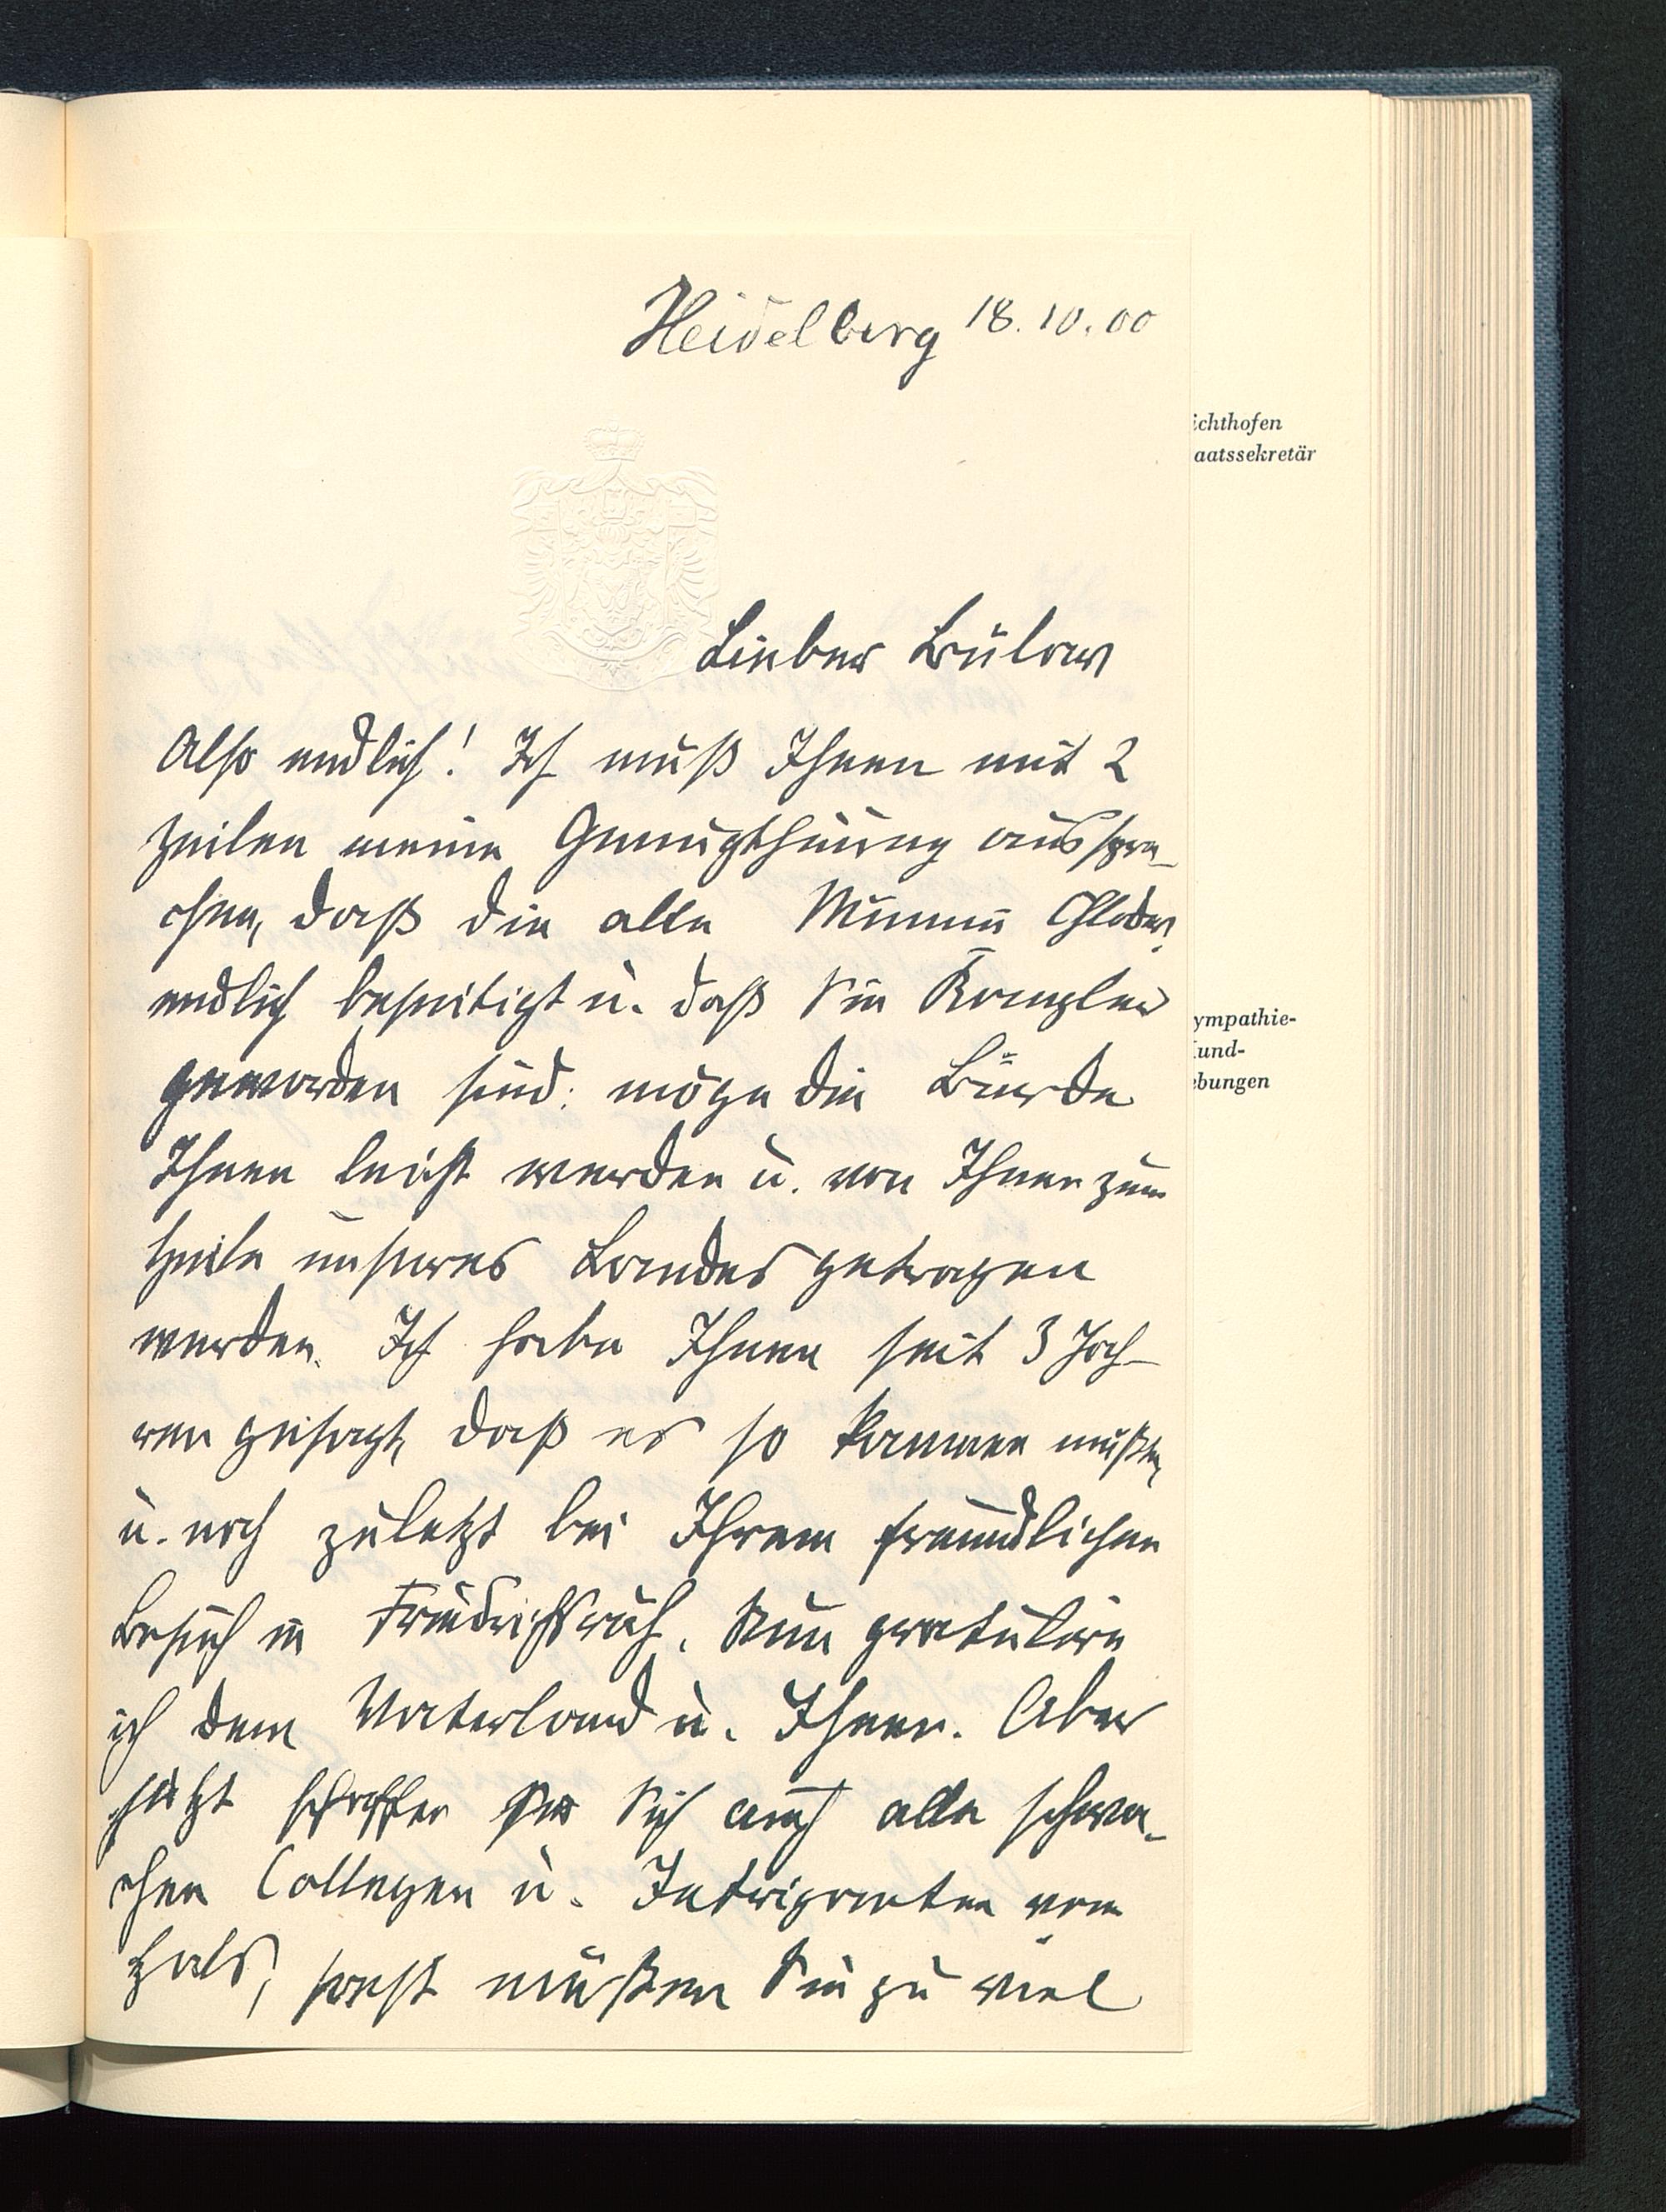 Heidelberg 18.10.00
ichthofen
aatssekretär
Lieber Bülow
Also endlich! Ich muß Ihnen mit 2
Zeilen meine Genugthuung ausspre-
chen, daß die alte Mumie Chlodw.
endlich beseitigt u. daß Sie Kanzler
geworden sind: möge die Bürde
Ihnen leicht werden u. von Ihnen zum
Heile unseres Landes getragen
werden. Ich habe Ihnen seit 3 Jah-
ren gesagt, daß es so kommen mußte,
u. noch zuletzt bei Ihrem freundlichen
Besuch in Friedrichsruh. Nun gratulire
ich dem Vaterland u. Ihnen. Aber
jetzt schaffen Sie Sich auch alle schwa-
chen Collegen u. Intriganten vom
Hals, sonst müßen Sie zu viel
ympathie-
Kund-
ebungen